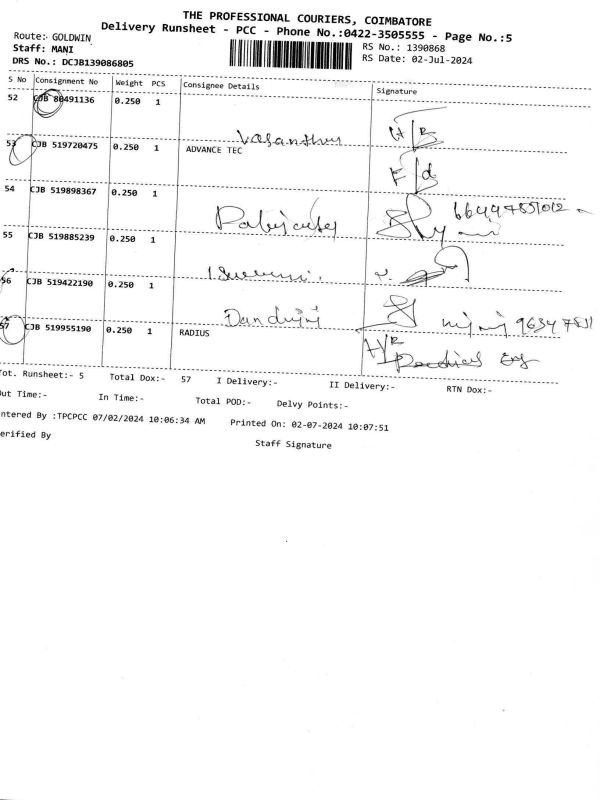 THE PROFESSIONAL COURIERS, COIMBATORE
Delivery Runsheet - PCC - Phone No.:0422-3505555 - Page No.:5
Route:- GOLDWIN
RS No.: 1390868
Staff: MANI
RS Date: 02-Jul-2024
DRS No.: DCJB139086805
S No Consignment No Weight PCS Consignee Details Signature
52 CJB 80491136 0.250 1 H/R
53 CJB 519720475 0.250 1 ADVANCE TEC
54 CJB 519898367 0.250 1
55 CJB 519885239 0.250 1
56 CJB 519422190 0.250 1
57 CJB 519955190 0.250 1 RADIUS
H/R
Tot. Runsheet:- 5 Total Dox:- 57 I Delivery:- II Delivery:- RTN Dox:-
Out Time:- In Time:- Total POD:- Delvy Points:-
ntered By :TPCPCC 07/02/2024 10:06:34 AM Printed On: 02-07-2024 10:07:51
erified By Staff Signature